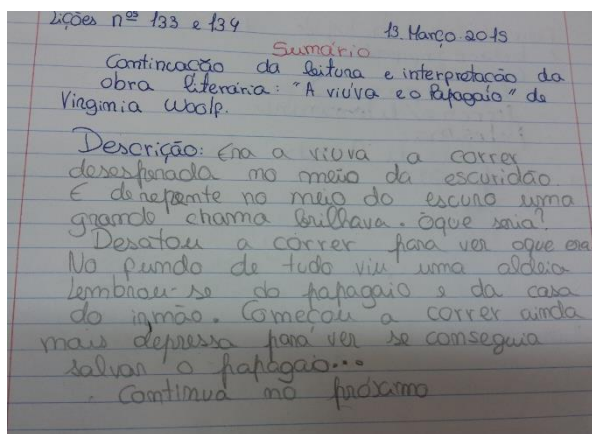 Lições nºs 133 e 134
13. Março 2015
Sumário
Continuacão da leitura e interpretação da
obra literária: "A viúva e o Papagaio" de
Virginia Woolf.
Descrição: Era a viuva a correr
desesperada no meio da escuridão.
E derepente no meio do escuro uma
grande chama brilhava. Oque seria?
Desatou a correr para ver oque era
No fundo de tudo viu uma aldeia
Lembrou-se do papagaio e da casa
do irmão. Começou a correr ainda
mais depressa para ver se conseguia
salvar o papagaio...
Continua no próximo